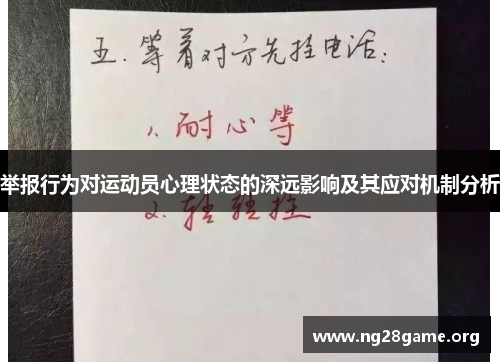 五.等着对方先挂电话:
1.耐心等
举报行为对运动员心理状态的深远影响及其应对机制分析
2.轻轻挂
www.ng28game.org